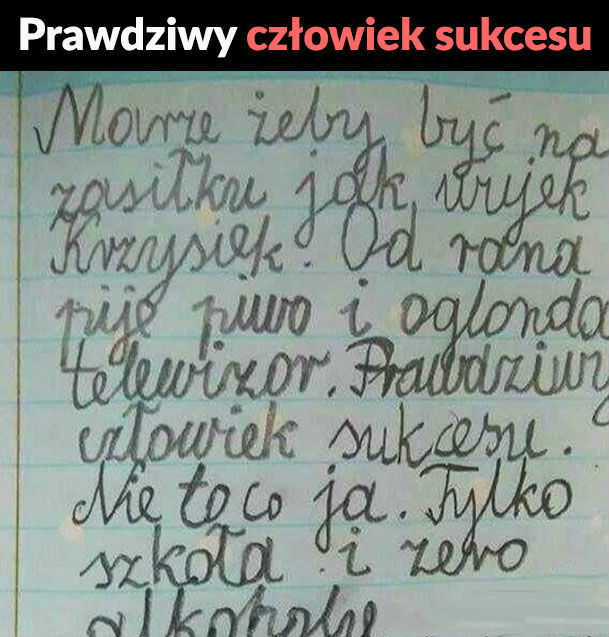 Prawdziwy człowiek sukcesu
Marze żeby być na
zasiłku jak wujek
Krzysiek. Od rana
pije piwo i oglonda
telewizor. Prawdziwy
człowiek sukcesu.
Nie to co ja. Tylko
szkoła i zero